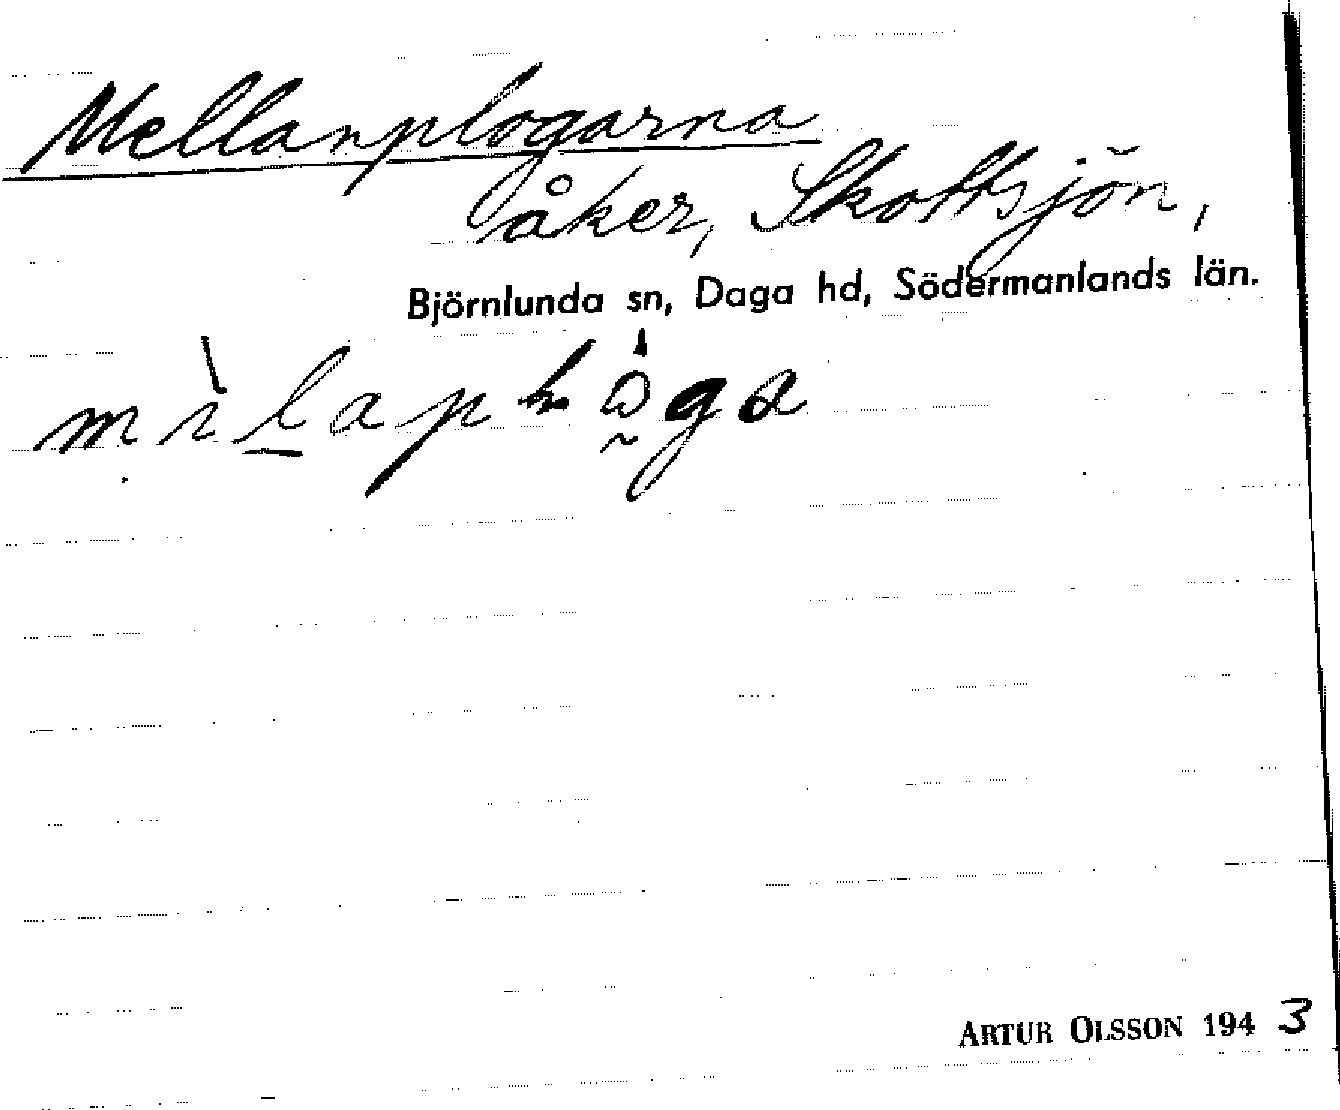 Mellanplogarna
åker, Skottsjön,
Björnlunda sn, Daga hd, Södermanlands län.
ARTUR OLSSON 1943